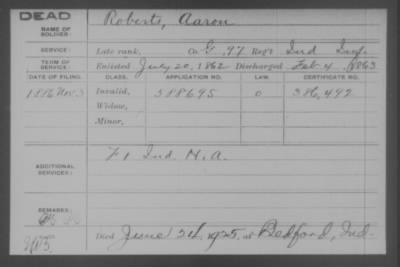 DEAD
NAME OF SOLDIER: Roberts, Aaron
SERVICE: Late rank, Co G, 97 Reg't Ind Inf.
TERM OF SERVICE: Enlisted July 20, 1862 Discharged Feb 4, 1863
DATE OF FILING. CLASS. APPLICATION NO. LAW. CERTIFICATE NO.
1886 Nov 3 Invalid, 588695 0 386,492
Widow,
Minor,
ADDITIONAL SERVICES: F 1 Ind. H. A.
REMARKS:
Died June 1925, at Bedford, Ind.